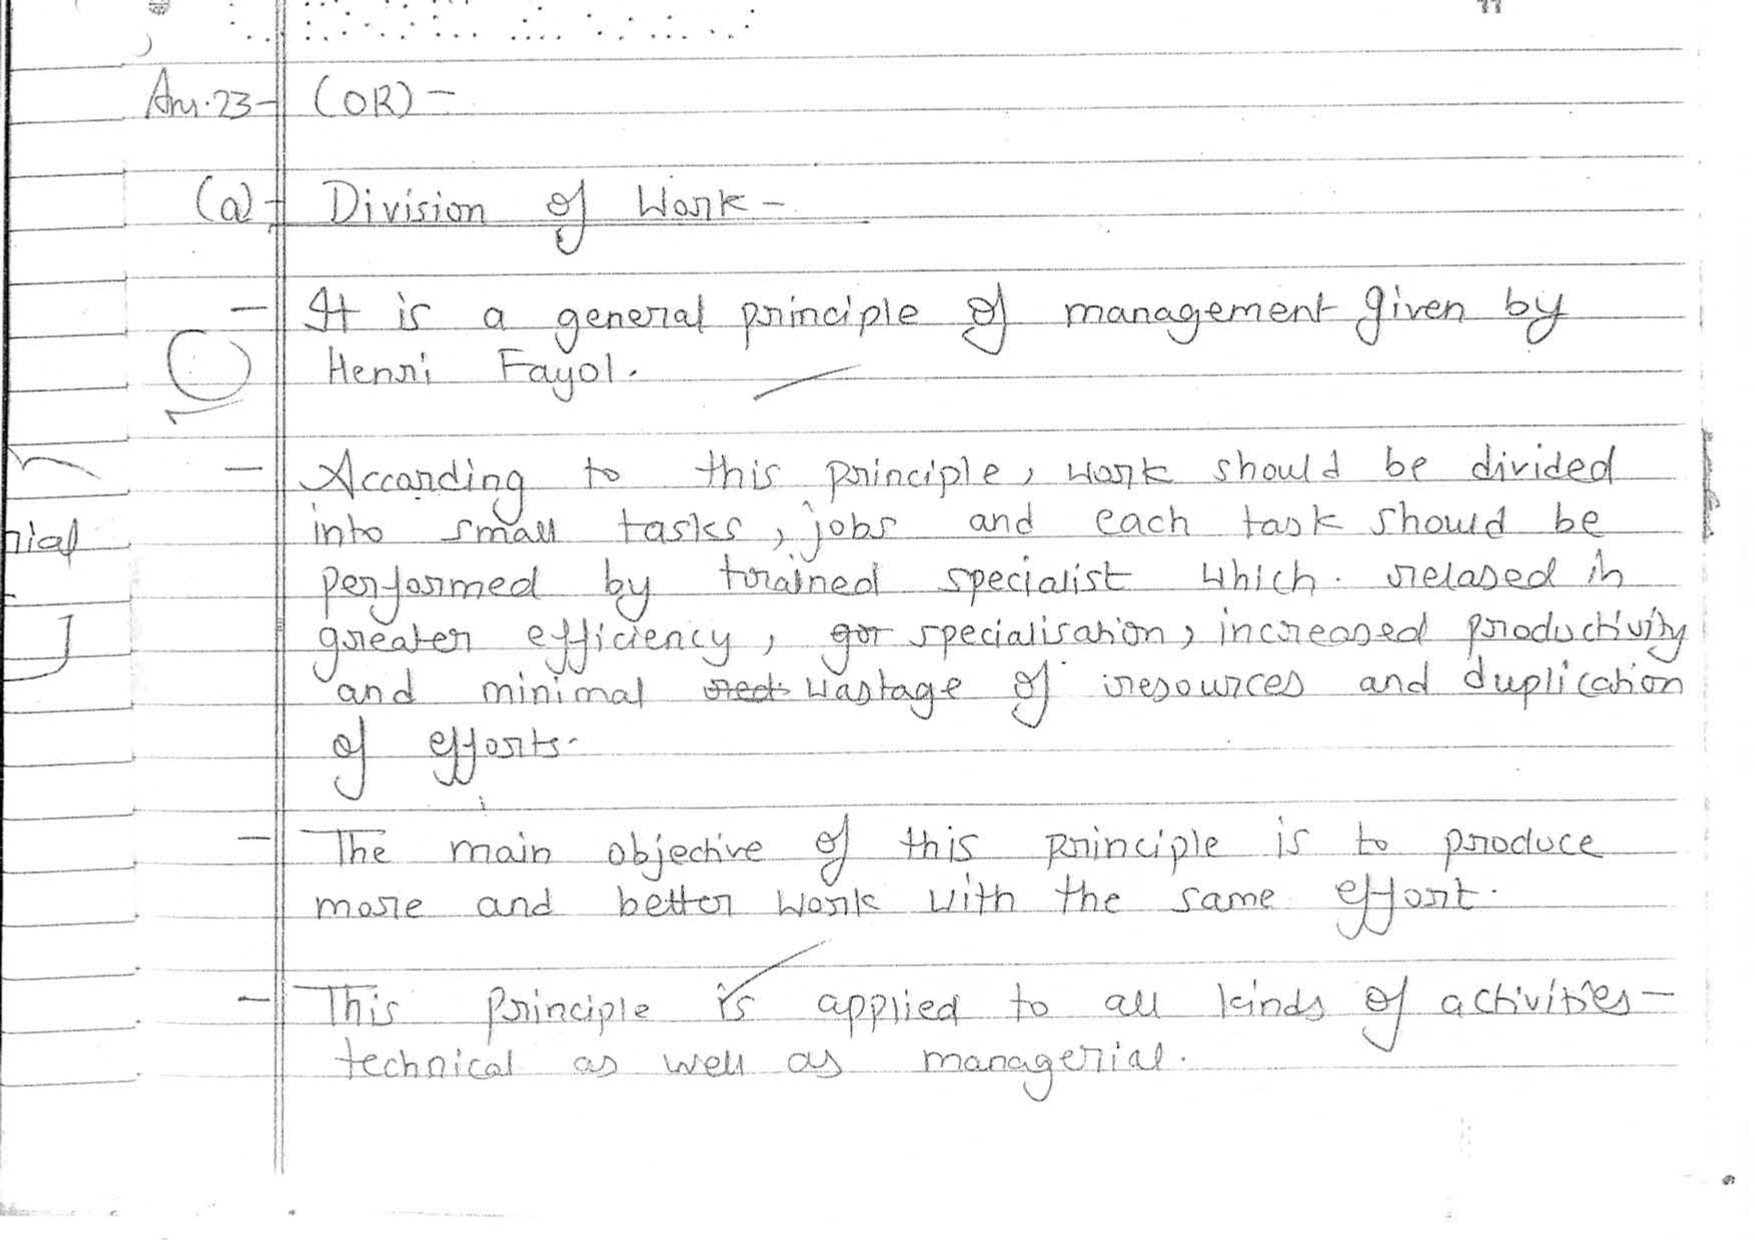 11
Ans.23- (OR) -
(a) - Division of Work -
- It is a general principle of management given by
Henri Fayol.
- According to this principle, work should be divided
into small tasks, jobs and each task should be
nial
performed by trained specialist which relased in
greater efficiency, gor specialisation, increased productivity
and minimal red wastage of resources and duplication
of efforts.
- The main objective of this principle is to produce
more and better work with the same effort.
- This principle is applied to all kinds of activities -
technical as well as managerial.